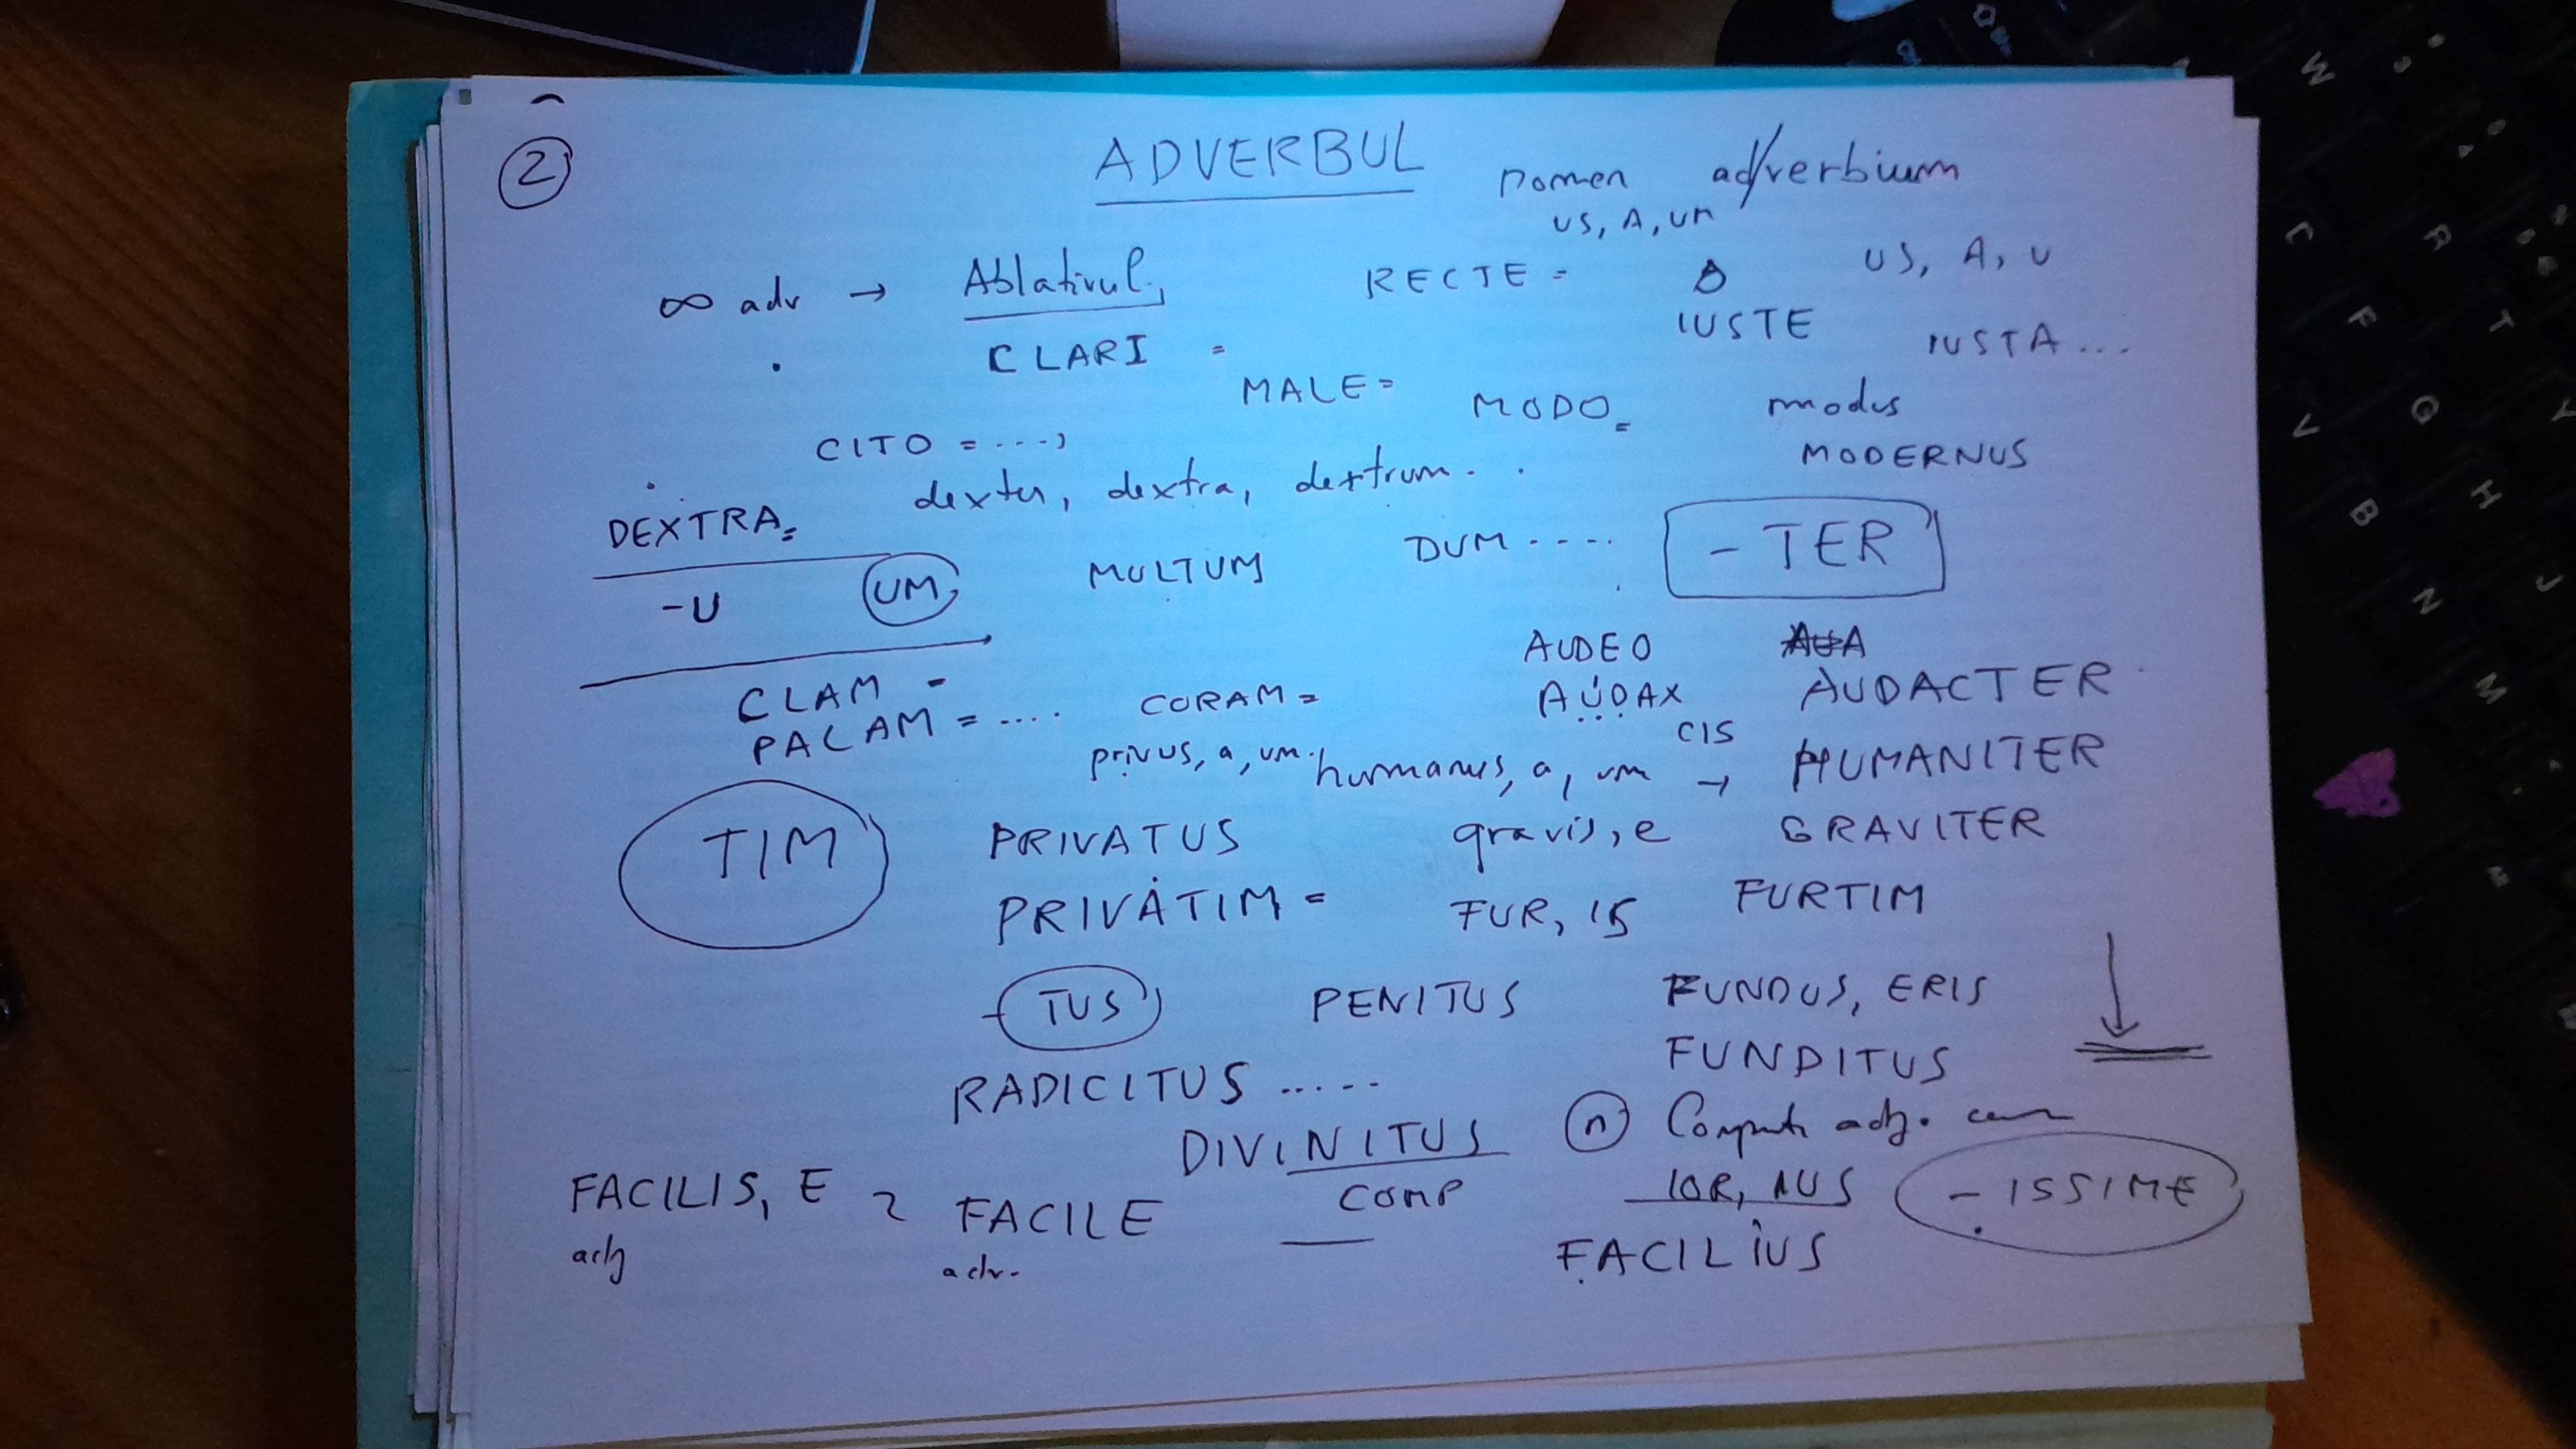 2
ADVERBUL
nomen ad/verbium
US, A, UM
∞ adv → Ablativul,
RECTE =
US, A, U
IUSTE
IUSTA ...
CLARI =
MALE =
MODO =
modus
MODERNUS
CITO = ...,
dexter, dextra, dextrum. .
DEXTRA =
-U UM
MULTUM
DUM ....
- TER
AUDEO
CLAM =
CORAM =
AUDAX
AUDACTER
PALAM = ....
CIS
privus, a, um.
humanus, a, um → HUMANITER
TIM
PRIVATUS
gravis, e GRAVITER
PRIVATIM =
FUR, IS FURTIM
- TUS
PENITUS
FUNDUS, ERIS
FUNDITUS
RADICITUS .....
DIVINITUS
n adj.
COMP
IOR, IUS
- ISSIME
FACILIS, E FACILE
FACILIUS
adj
adv.